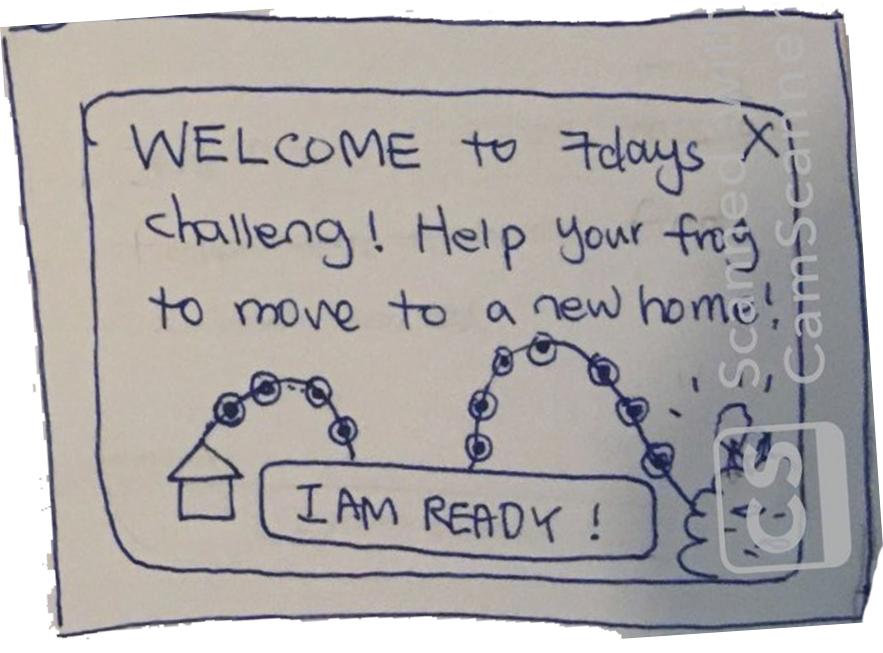 WELCOME to 7days X
challeng! Help your frog
to move to a new home!
I AM READY !
Scanned with
CamScanner
CS